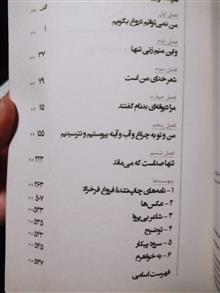 الف
فصل اول
من نمی‌توانم دروغ بگویم
۱
فصل دوم
و این منم زنی تنها
۳۷
فصل سوم
شعر خدای من است
۷۹
فصل چهارم
مرا دیوانه‌ای بدنام گفتند
۱۱۵
فصل پنجم
من و تو به چراغ و آب و آینه پیوستیم و نترسیدیم
۱۵۵
فصل ششم
تنها صداست که می‌ماند
۲۲۳
پیوست‌ها
۱- نامه‌های چاپ‌نشدهٔ فروغ فرخزاد
۲۶۳
۲- عکس‌ها
۵۰۷
۳- شاعر بی‌پروا
۵۳۳
۴- توضیح
۵۳۵
۵- سرود پیکار
۵۴۵
۶- به خواهرم
۵۴۷
فهرست اسامی